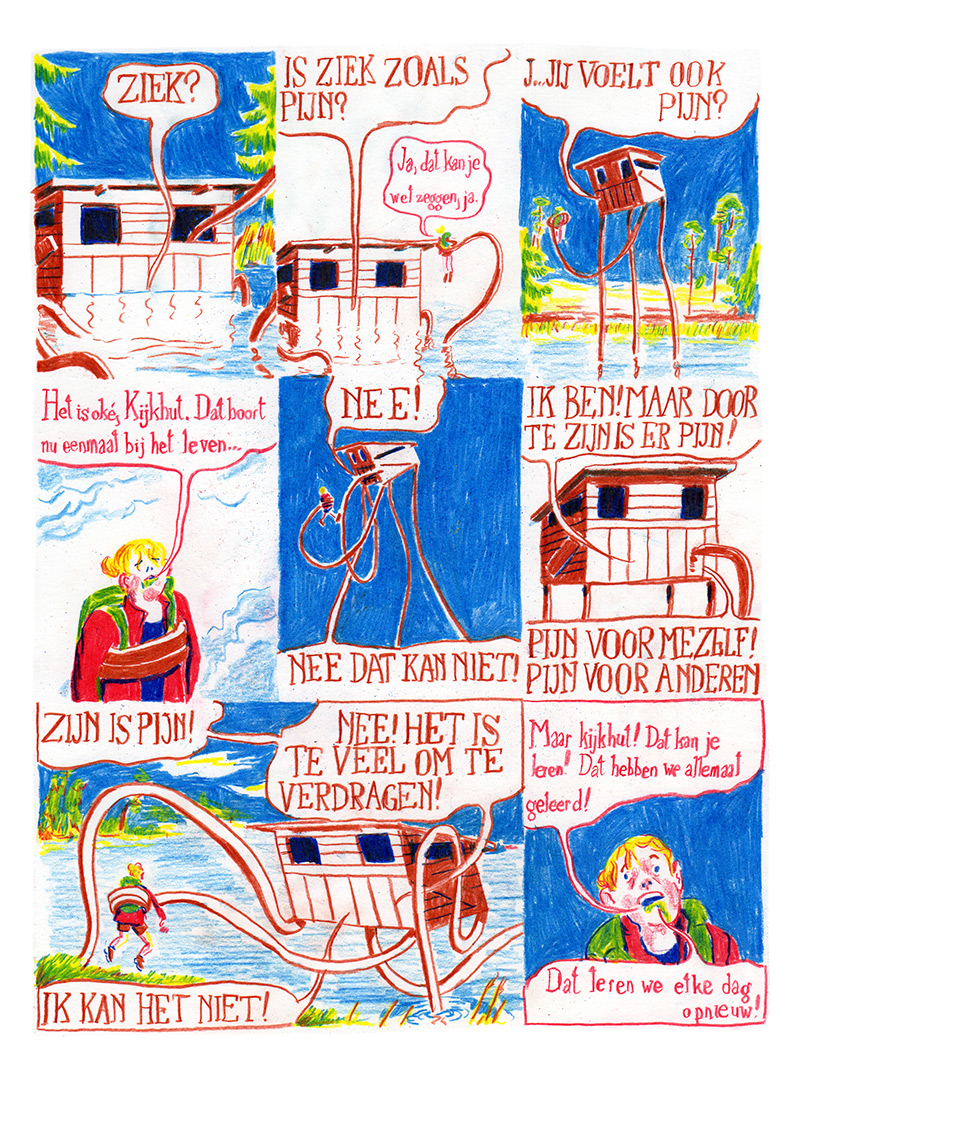 ZIEK?
IS ZIEK ZOALS
PIJN?
Ja, dat kan je
wel zeggen, ja.
J...JIJ VOELT OOK
PIJN?
Het is oké, Kijkhut. Dat hoort
nu eenmaal bij het leven...
NEE!
NEE DAT KAN NIET!
IK BEN! MAAR DOOR
TE ZIJN IS ER PIJN!
PIJN VOOR MEZELF!
PIJN VOOR ANDEREN
ZIJN IS PIJN!
NEE! HET IS
TE VEEL OM TE
VERDRAGEN!
IK KAN HET NIET!
Maar kijkhut! Dat kan je
leren! Dat hebben we allemaal
geleerd!
Dat leren we elke dag
opnieuw!